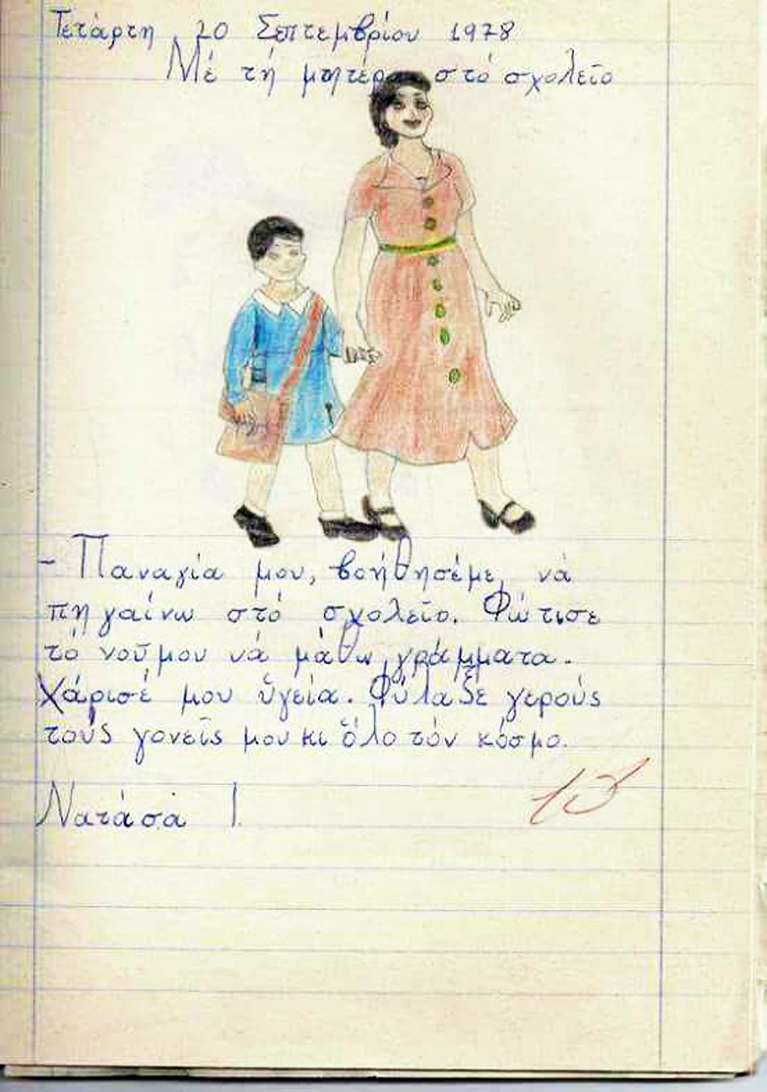 Τετάρτη 20 Σεπτεμβρίου 1978
Μέ τή μητέρα στό σχολεῖο
- Παναγία μου, βοήθησέμε, νά
πηγαίνω στό σχολεῖο. Φώτισε
τό νοῦ μου νά μάθω γράμματα.
Χάρισέ μου ὑγεία. Φύλαξε γερούς
τούς γονεῖς μου κι ὅλο τόν κόσμο.
Νατάσα Ι.